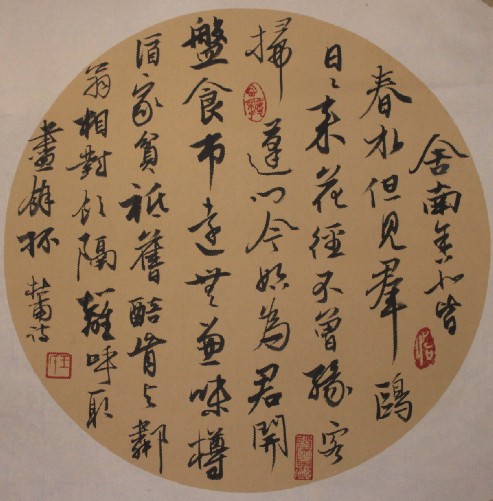 舍南舍北皆
春水但見羣鷗
日〻來花徑不曾緣客
掃蓬門今始為君開
盤食市遠無兼味樽
酒家貧祗舊醅肯与鄰
翁相對飲隔離呼取
盡餘杯
杜甫詩